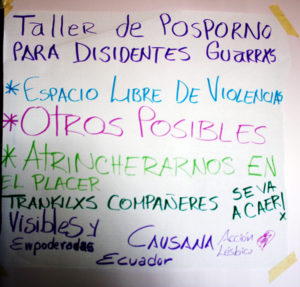 Taller de POSPORNO
PARA DISIDENTES GUARRXS
*ESPACIO LIBRE DE VIOLENCIAS
*OTROS POSIBLES
*ATRINCHERARNOS EN
EL PLACER
TRANKILXS COMPAÑERES SE VA
A CAER!
x
Visibles y
Empoderadas
CAUSANA Acción
Lésbica
Ecuador